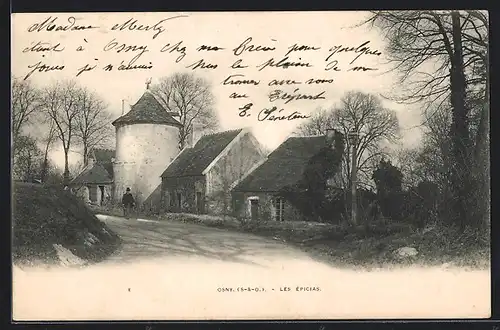 Madame Merty
étant à Osny chez ma Mère pour quelques
jours je n'aurais pas le plaisir de me
trouver avec vous
au départ
E. Sénéchau
8
OSNY. (S-&-O.). - LES ÉPICIAS.